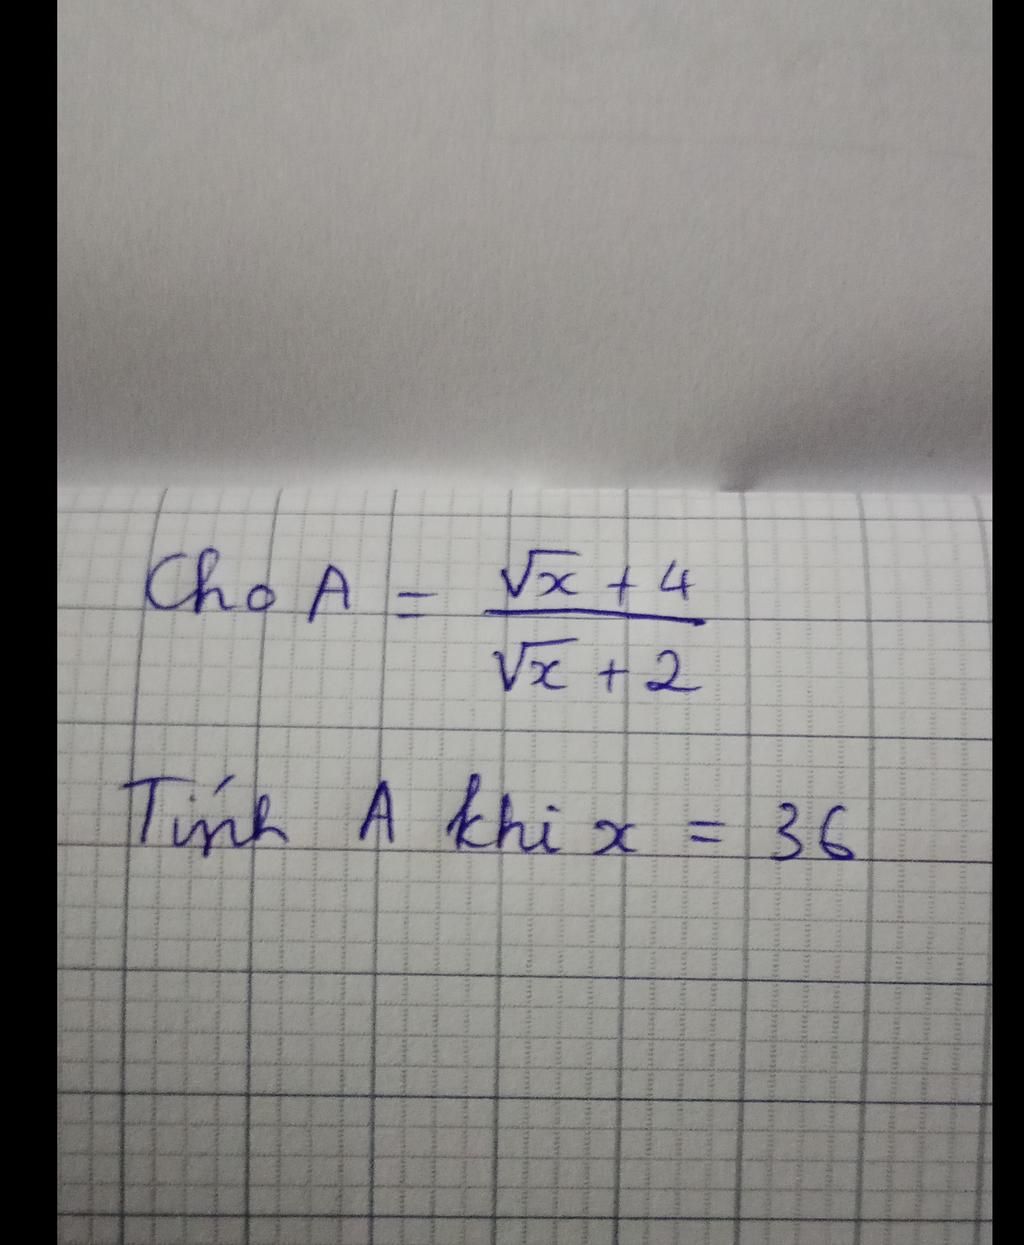 Cho A = \frac{\sqrt{x} + 4}{\sqrt{x} + 2}
Tính A khi x = 36